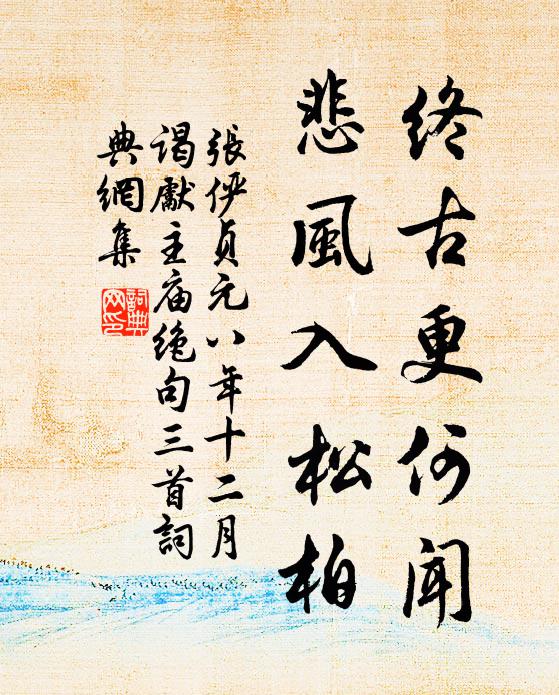 終古更何聞
悲風入松柏
張儼貞元八年十二月
謁獻主庙絶句三首詞
典網集
詞典
网印